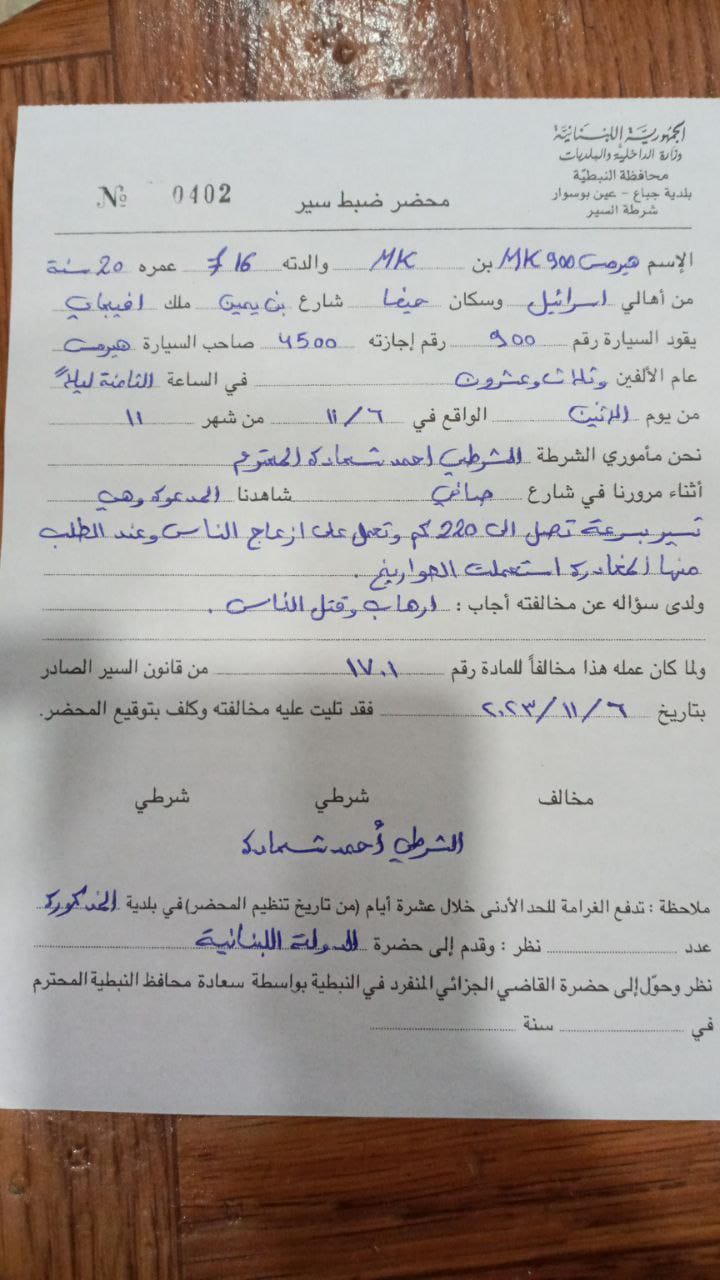 الجمهورية اللبنانية
وزارة الداخلية والبلديات
محافظة النبطية
بلدية جباع - عين بوسوار
شرطة السير
محضر ضبط سير
№ 0402
الإسم هيرمس MK 900 بن MK والدته F 16 عمره 20 سنة
من أهالي اسرائيل وسكان حيفا شارع بن يمين ملك افيخاي
يقود السيارة رقم 900 رقم إجازته 4500 صاحب السيارة هيرمس
عام الألفين وثلاث وعشرون في الساعة الثامنة ليلاً
من يوم الاثنين الواقع في ١١/٦ من شهر ١١
نحن مأموري الشرطة الشرطي احمد شحادة المحترم
أثناء مرورنا في شارع صافي شاهدنا المدعوة وهي
تسير بسرعة تصل الى 220 كم وتعمل على ازعاج الناس وعند الطلب
منها المغادرة استعملت الصواريخ .
ولدى سؤاله عن مخالفته أجاب : ارهاب وقتل الناس .
ولما كان عمله هذا مخالفاً للمادة رقم ١٧٠١ من قانون السير الصادر
بتاريخ ٢٠٢٣/١١/٦ فقد تليت عليه مخالفته وكلف بتوقيع المحضر.
مخالف شرطي شرطي
الشرطي أحمد شحادة
ملاحظة : تدفع الغرامة للحد الأدنى خلال عشرة أيام (من تاريخ تنظيم المحضر) في بلدية المذكورة
عدد نظر : وقدم إلى حضرة الدولة اللبنانية
نظر وحوّل إلى حضرة القاضي الجزائي المنفرد في النبطية بواسطة سعادة محافظ النبطية المحترم
في سنة